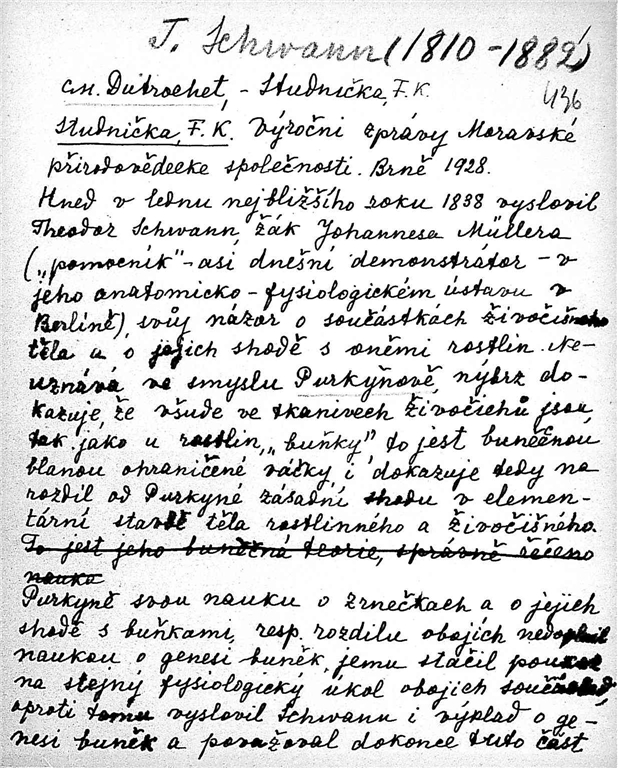 T. Schwann (1810-1882)
cn. Dutrochet, - Studnička, F.K.
436
Studnička, F.K. Výročni zprávy Moravské
přirodovědecke společnosti. Brně 1928.
Hned v lednu nejbližšího roku 1838 vyslovil
Theodor Schwann, žák Johannesa Müllera
(„pomocnik" - asi dnešní demonstrátor - v
jeho anatomicko-fysiologickém ústavu v
Berlíně), svůj názor o součástkách živočišneho
těla a o jejich shodě s oněmi rostlin. Ne-
uznává ve smyslu Purkyňově, nýbrz do-
kazuje, že všude ve tkanivech živočichů jsou,
tak jako u rostlin, „buňky", to jest buněčnou
blanou ohraničené váčky, i dokazuje tedy na
rozdil od Purkyně zásadní shodu v elemen-
tární stavbě těla rostlinného a živočišného.
To jest jeho buněčná teorie, správně řěčeno
nauka
Purkyně svou nauku o zrnečkach a o jejich
shodě s buňkami, resp. rozdilu obojích nedoplnil
naukou o genesi buněk, jemu stačil poukaz
na stejný fysiologický úkol obojich součástek,
oproti tomu vyslovil Schwann i výklad o ge-
nesi buněk a považoval dokonce tuto část